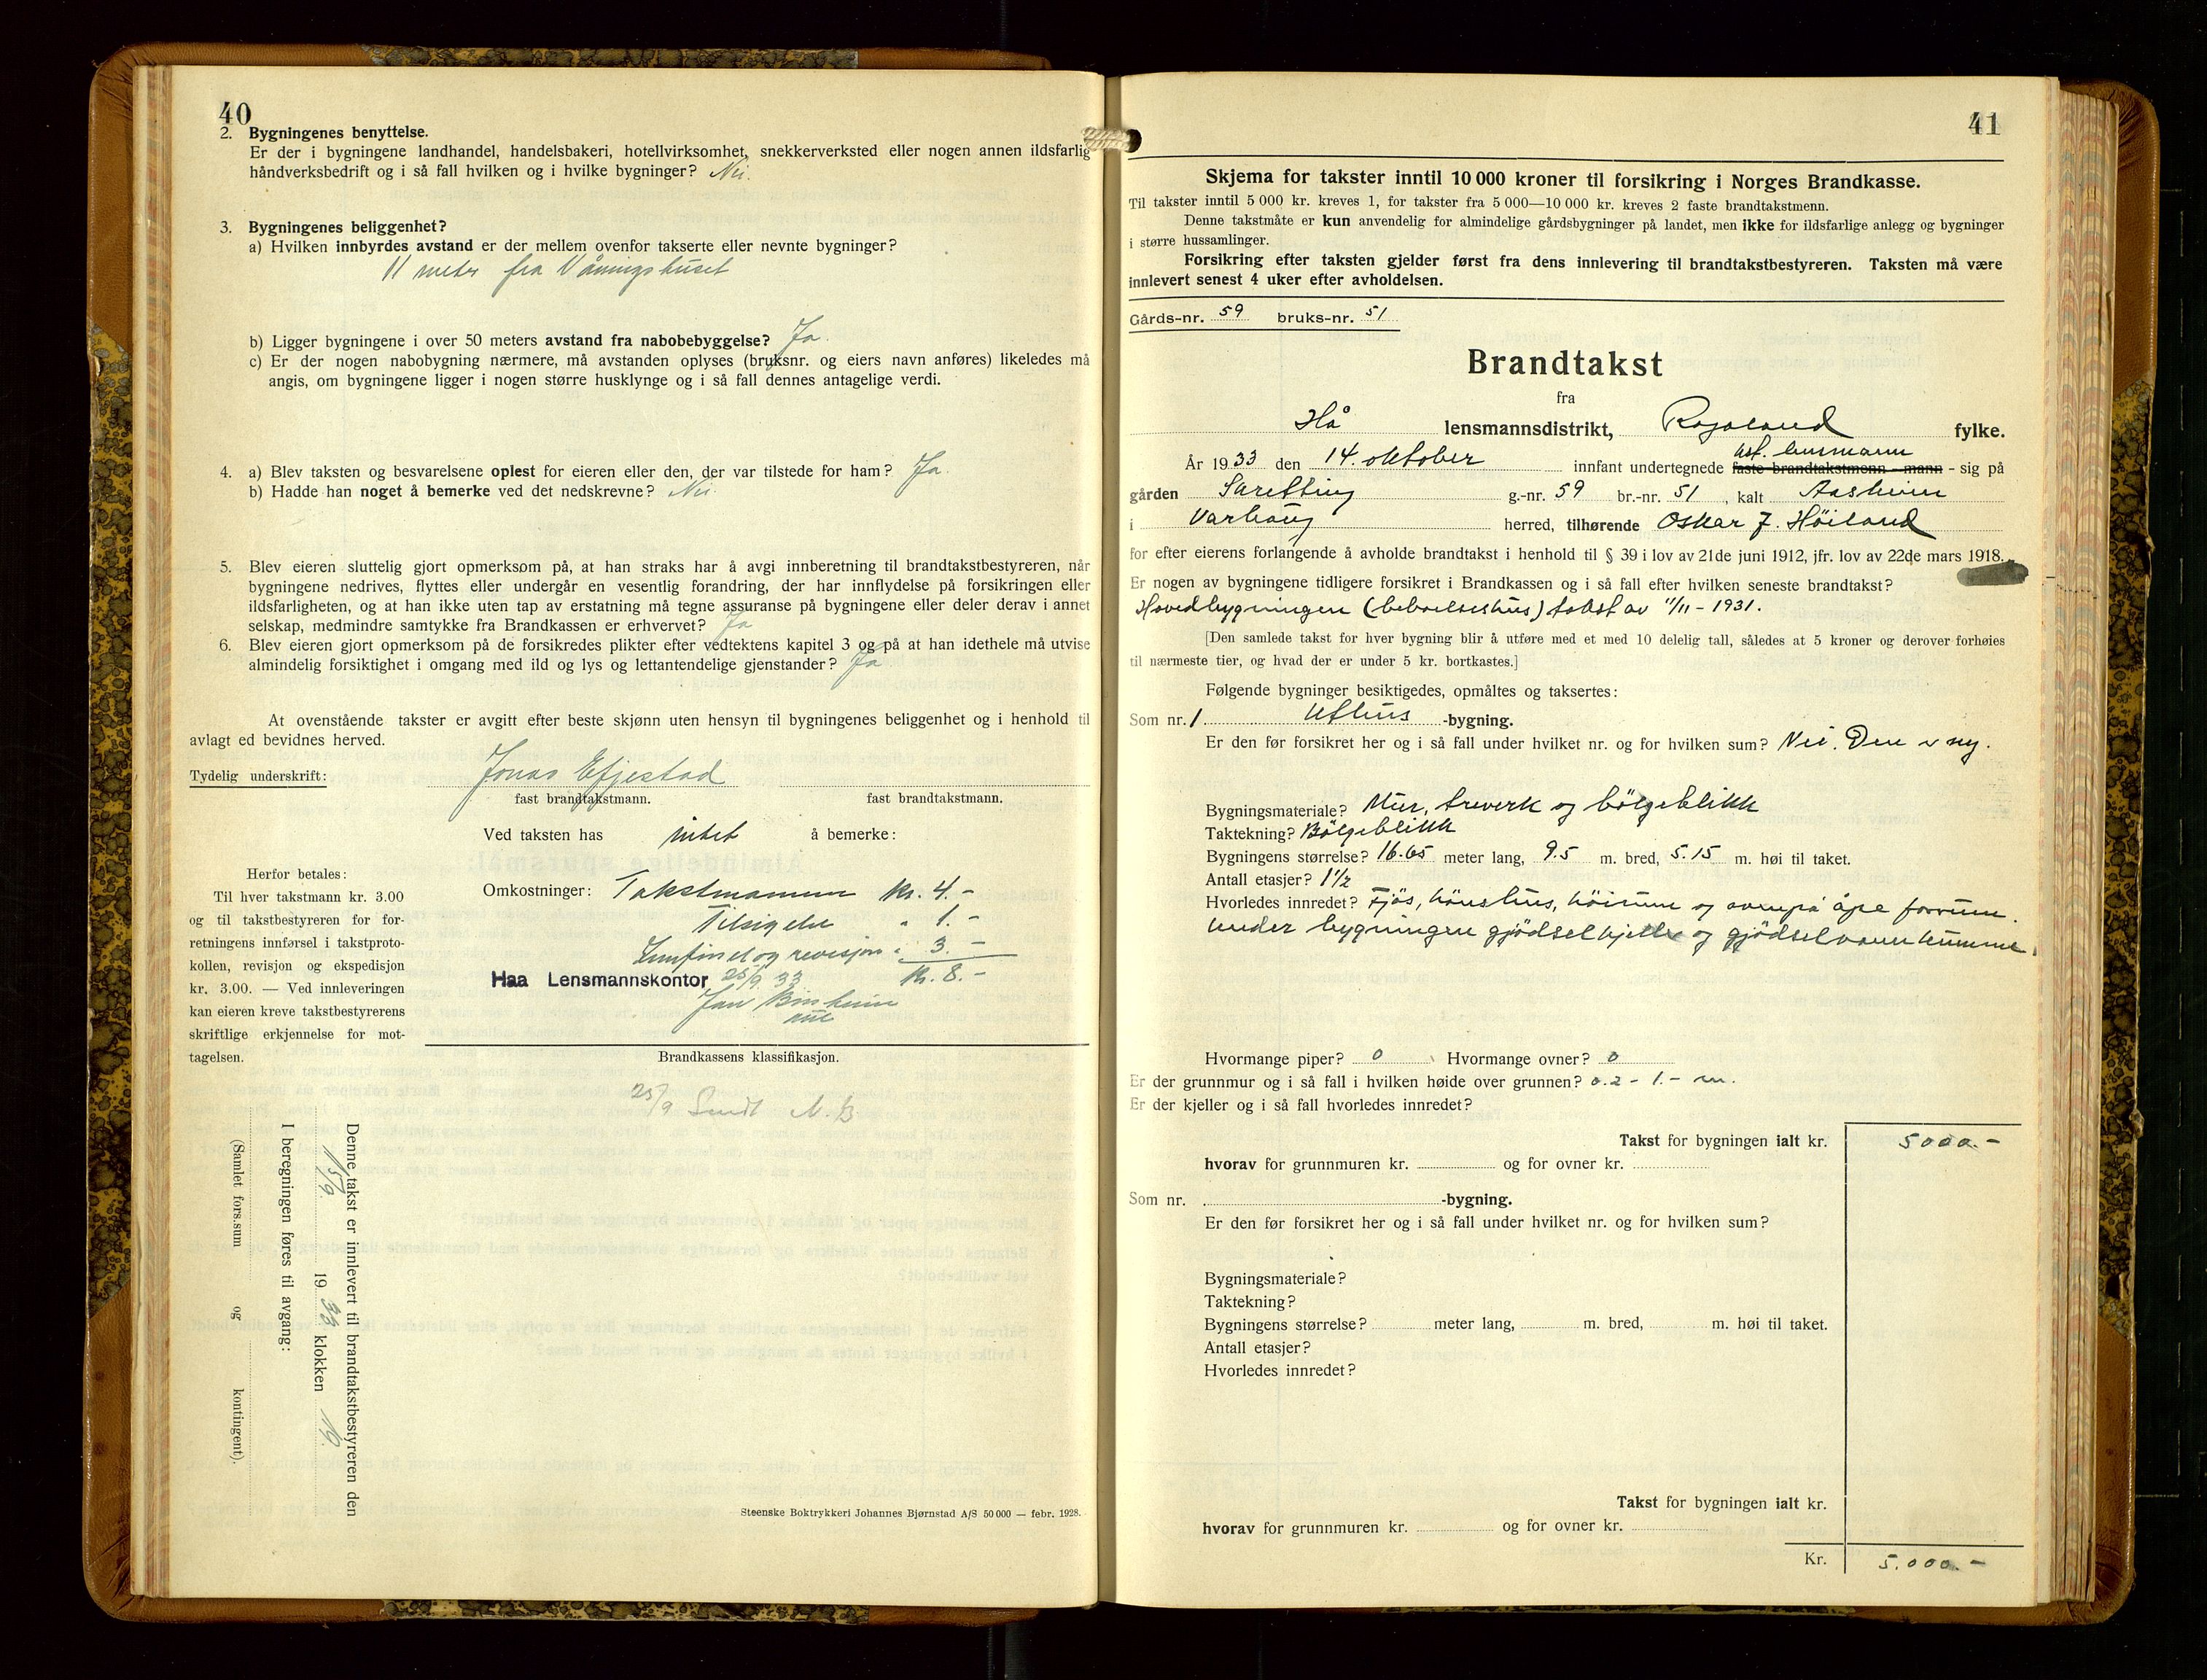 40
2. Bygningenes benyttelse.
Er der i bygningene landhandel, handelsbakeri, hotellvirksomhet, snekkerverksted eller nogen annen ildsfarlig
håndverksbedrift og i så fall hvilken og i hvilke bygninger? Nei.
3. Bygningenes beliggenhet?
a) Hvilken innbyrdes avstand er der mellem ovenfor takserte eller nevnte bygninger?
11 meter fra Våningshuset
b) Ligger bygningene i over 50 meters avstand fra nabobebyggelse? Ja.
c) Er der nogen nabobygning nærmere, må avstanden oplyses (bruksnr. og eiers navn anføres) likeledes må
angis, om bygningene ligger i nogen større husklynge og i så fall dennes antagelige verdi.
4. a) Blev taksten og besvarelsene oplest for eieren eller den, der var tilstede for ham? Ja.
b) Hadde han noget å bemerke ved det nedskrevne? Nei.
5. Blev eieren sluttelig gjort opmerksom på, at han straks har å avgi innberetning til brandtakstbestyreren, når
bygningene nedrives, flyttes eller undergår en vesentlig forandring, der har innflydelse på forsikringen eller
ildsfarligheten, og at han ikke uten tap av erstatning må tegne assuranse på bygningene eller deler derav i annet
selskap, medmindre samtykke fra Brandkassen er erhvervet? Ja
6. Blev eieren gjort opmerksom på de forsikredes plikter efter vedtektens kapitel 3 og på at han idethele må utvise
almindelig forsiktighet i omgang med ild og lys og lettantendelige gjenstander? Ja
At ovenstående takster er avgitt efter beste skjønn uten hensyn til bygningenes beliggenhet og i henhold til
avlagt ed bevidnes herved.
Tydelig underskrift: Jonas Efjestad
fast brandtakstmann. fast brandtakstmann.
Ved taksten has intet å bemerke:
Herfor betales:
Til hver takstmann kr. 3.00
og til takstbestyreren for for-
retningens innførsel i takstproto-
kollen, revisjon og ekspedisjon
kr. 3.00. — Ved innleveringen
kan eieren kreve takstbestyrerens
skriftlige erkjennelse for mot-
tagelsen.
Omkostninger: Takstmannen kr. 4.-
Tilsigelse " 1.-
og revisjon " 3.-
Haa Lensmannskontor 25/9. 33 kr. 8.-
Brandkassens klassifikasjon.
25/9 Sendt N. B
Denne takst er innlevert til brandtakstbestyreren den
15/9. 1933 klokken 19.
I beregningen føres til avgang:
(Samlet fors.sum og kontingent).
Steenske Boktrykkeri Johannes Bjørnstad A/S 50 000 — febr. 1928.
41
Skjema for takster inntil 10 000 kroner til forsikring i Norges Brandkasse.
Til takster inntil 5 000 kr. kreves 1, for takster fra 5 000—10 000 kr. kreves 2 faste brandtakstmenn.
Denne takstmåte er kun anvendelig for almindelige gårdsbygninger på landet, men ikke for ildsfarlige anlegg og bygninger
i større hussamlinger.
Forsikring efter taksten gjelder først fra dens innlevering til brandtakstbestyreren. Taksten må være
innlevert senest 4 uker efter avholdelsen.
Gårds-nr. 59 bruks-nr. 51
Brandtakst
fra
Hå lensmannsdistrikt, Rogaland fylke.
lensmann
År 1933 den 14. oktober innfant undertegnede faste brandtakstmenn - mann - sig på
gården Skretting g.-nr. 59 br.-nr. 51, kalt Aasheim
i Varhaug herred, tilhørende Oskar J. Höiland
for efter eierens forlangende å avholde brandtakst i henhold til § 39 i lov av 21de juni 1912, jfr. lov av 22de mars 1918.
Er nogen av bygningene tidligere forsikret i Brandkassen og i så fall efter hvilken seneste brandtakst?
Hovedbygningen (beboelseshus) takst av 11/11-1931.
[Den samlede takst for hver bygning blir å utføre med et med 10 delelig tall, således at 5 kroner og derover forhøies
til nærmeste tier, og hvad der er under 5 kr. bortkastes.]
Følgende bygninger besiktigedes, opmåltes og taksertes:
Som nr. 1 Uthus -bygning.
Er den før forsikret her og i så fall under hvilket nr. og for hvilken sum? Nei. Den er ny.
Bygningsmateriale? Mur, treverk og bölgeblikk
Taktekning? Bölgeblikk
Bygningens størrelse? 16.65 meter lang, 9.5 m. bred, 5.15 m. høi til taket.
Antall etasjer? 1 1/2
Hvorledes innredet? Fjös, hönshus, höirum og ovenpå åpe forrum.
Under bygningen gjödselkjeller og gjödselvannkumme.
Hvormange piper? 0 Hvormange ovner? 0
Er der grunnmur og i så fall i hvilken høide over grunnen? 0.2 - 1.- m.
Er der kjeller og i så fall hvorledes innredet?
Takst for bygningen ialt kr. 5000.-
hvorav for grunnmuren kr. og for ovner kr.
Som nr. -bygning.
Er den før forsikret her og i så fall under hvilket nr. og for hvilken sum?
Bygningsmateriale?
Taktekning?
Bygningens størrelse? meter lang, m. bred, m. høi til taket.
Antall etasjer?
Hvorledes innredet?
Takst for bygningen ialt kr.
hvorav for grunnmuren kr. og for ovner kr.
Kr. 5.000.-